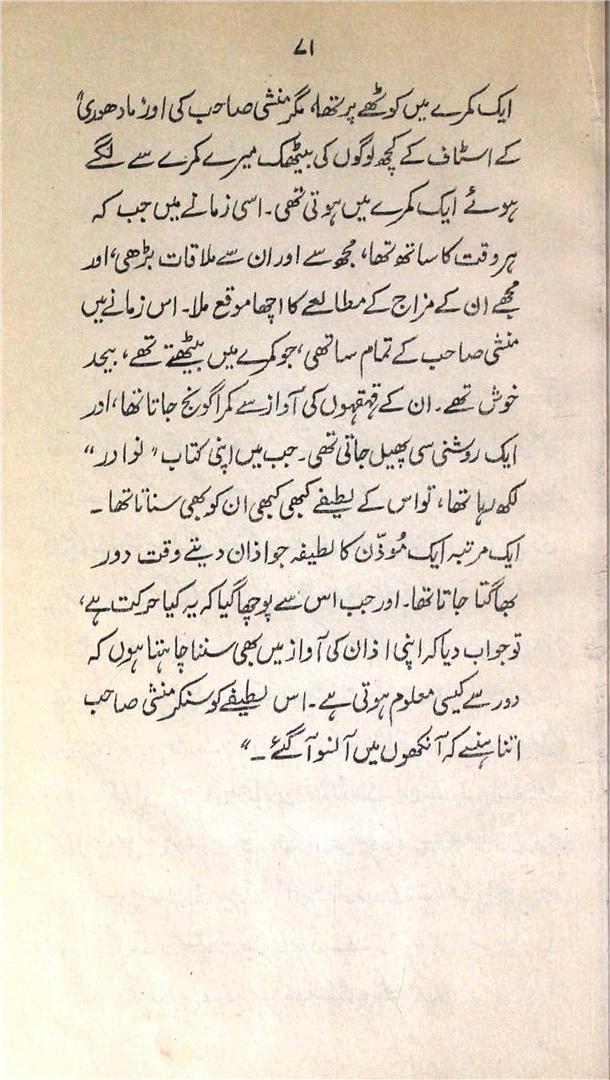 ۷۱
ایک کمرے میں کوٹھے پر تھا، مگر منشی صاحب کی اور 'مادھوری'
کے اسٹاف کے کچھ لوگوں کی بیٹھک میرے کمرے سے لگے
ہوئے ایک کمرے میں ہوتی تھی۔ اسی زمانے میں جب کہ
ہر وقت کا ساتھ تھا، مجھ سے اور ان سے ملاقات بڑھی، اور
مجھے ان کے مزاج کے مطالعے کا اچھا موقع ملا۔ اس زمانے میں
منشی صاحب کے تمام ساتھی، جو کمرے میں بیٹھتے تھے، بیحد
خوش تھے۔ ان کے قہقہوں کی آواز سے کمرا گونج جاتا تھا، اور
ایک روشنی سی پھیل جاتی تھی۔ جب میں اپنی کتاب "نوادر"
لکھ رہا تھا، تو اس کے لطیفے کبھی کبھی ان کو بھی سناتا تھا۔
ایک مرتبہ ایک مُوذّن کا لطیفہ جو اذان دیتے وقت دور
بھاگتا جاتا تھا۔ اور جب اس سے پوچھا گیا کہ یہ کیا حرکت ہے،
تو جواب دیا کہ اپنی اذان کی آواز میں بھی سننا چاہتا ہوں کہ
دور سے کیسی معلوم ہوتی ہے۔ اس لطیفے کو سنکر منشی صاحب
اتنا ہنسے کہ آنکھوں میں آنسو آ گئے۔"